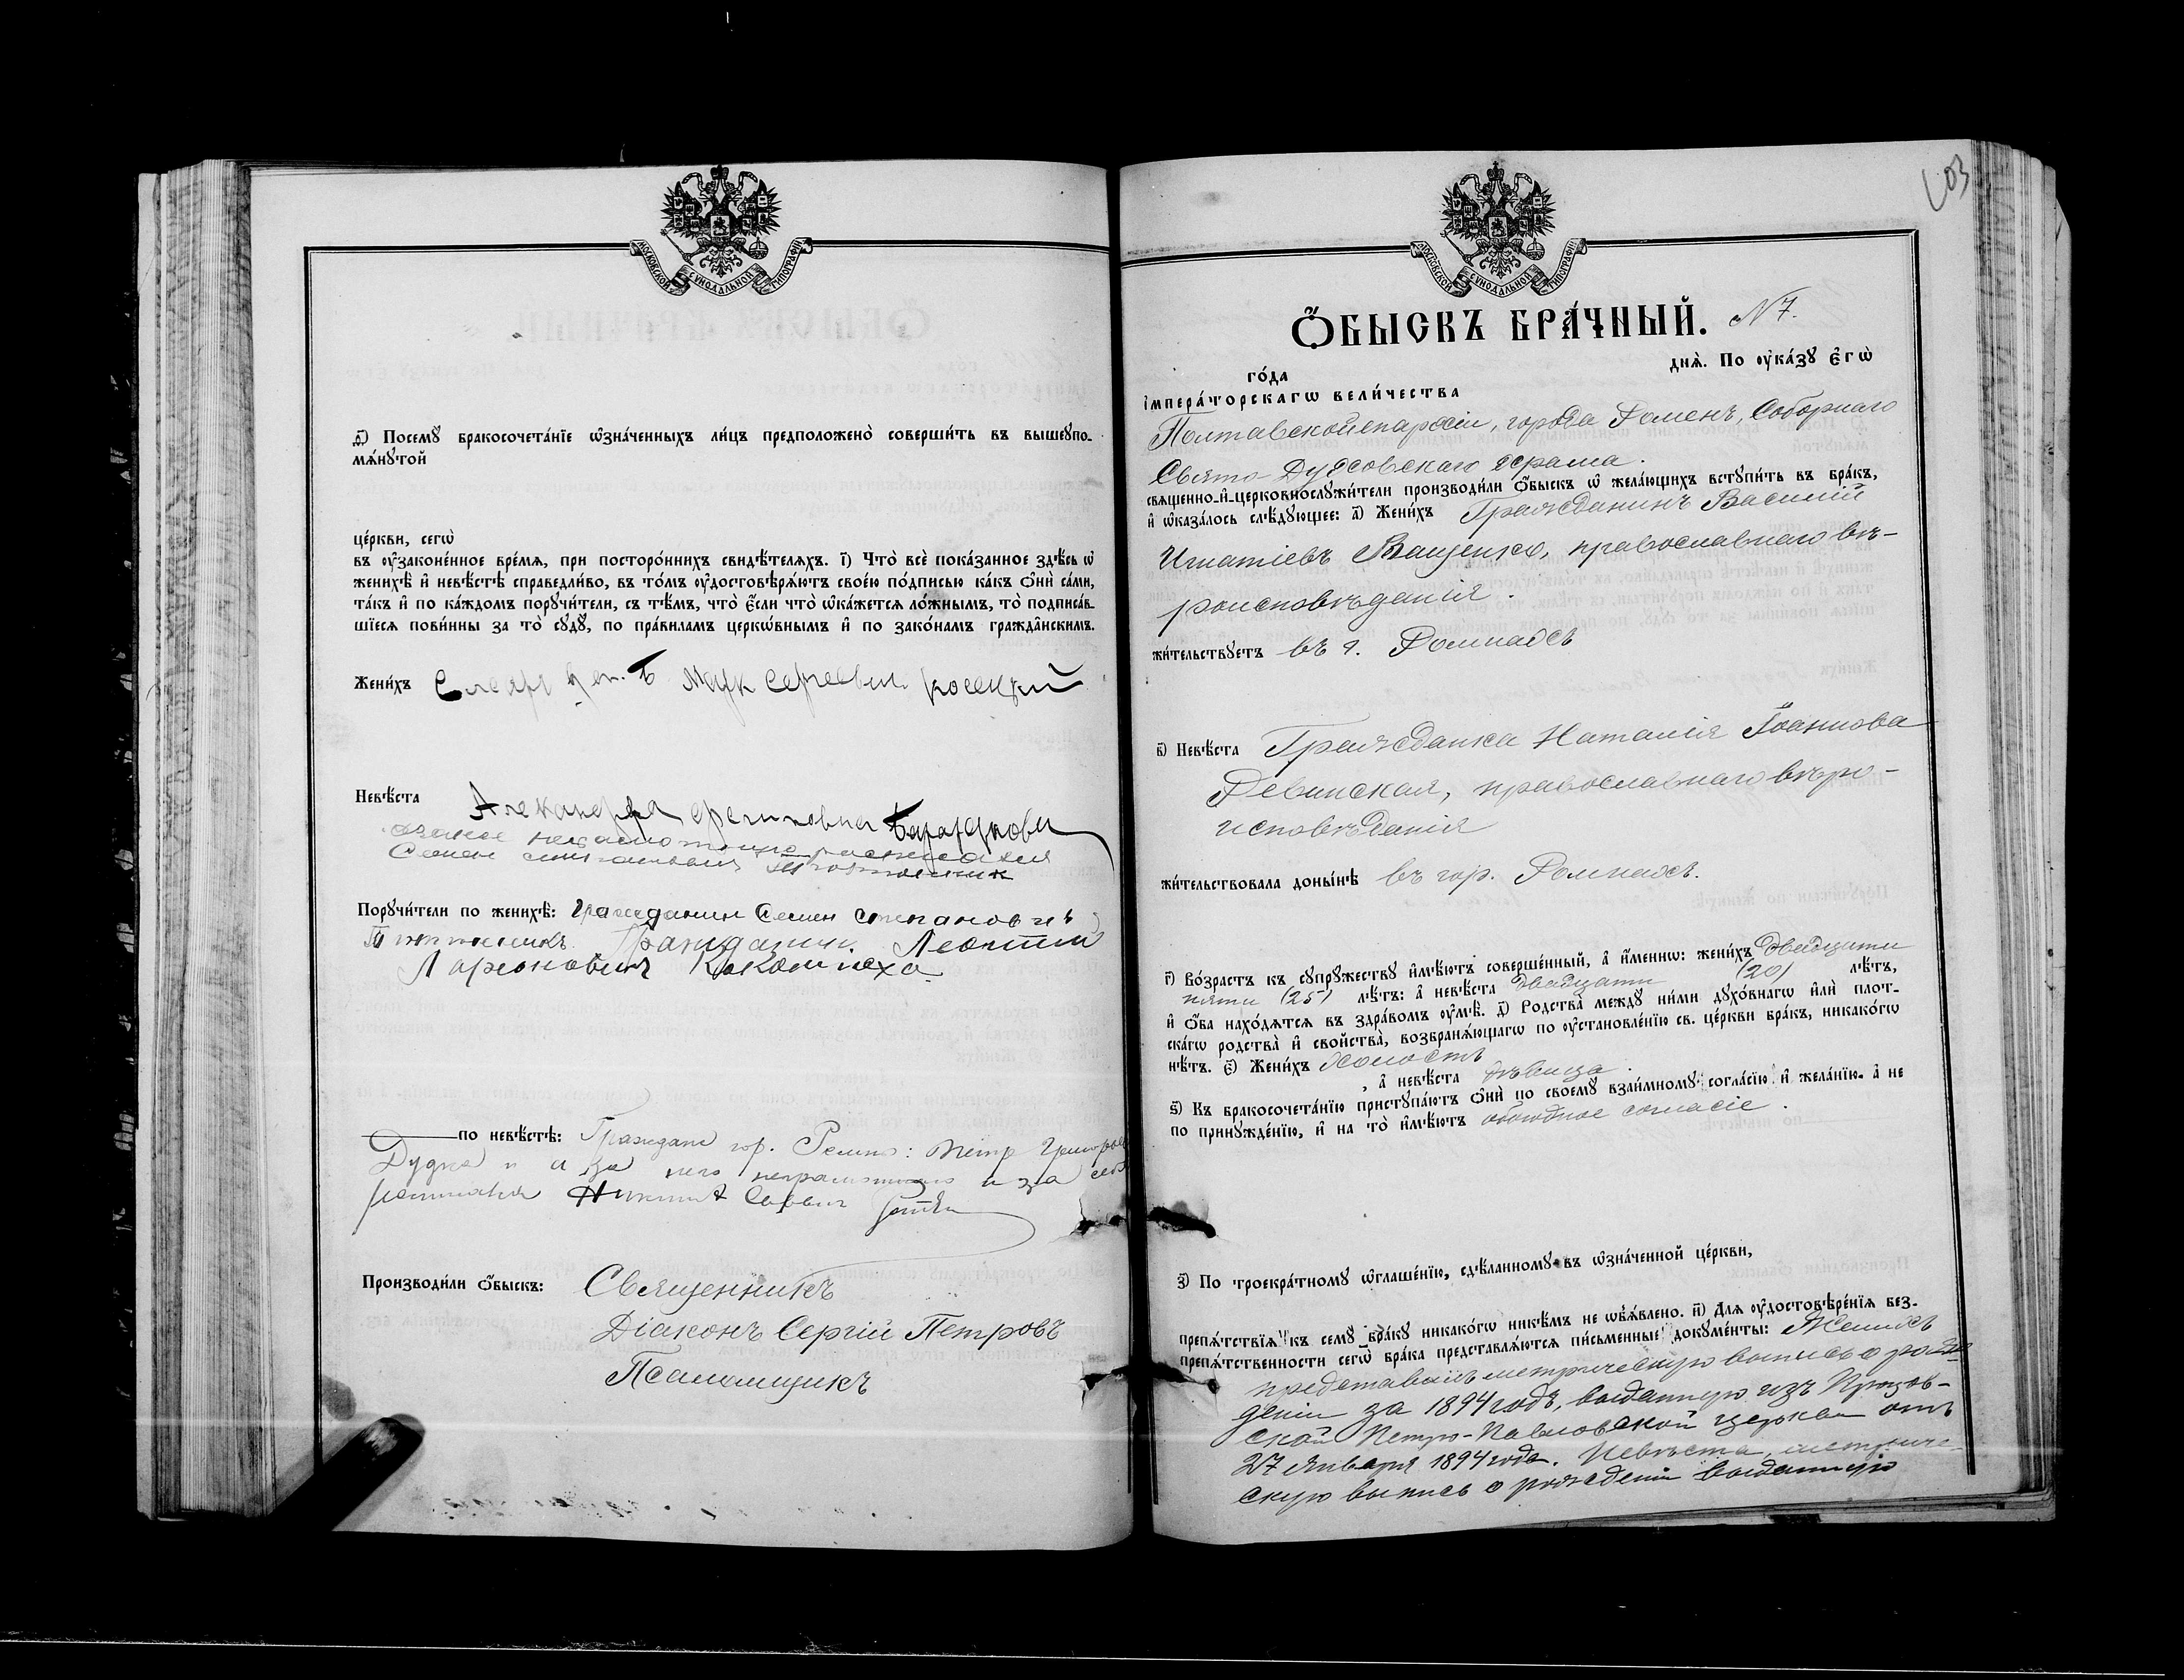 МОСКОВСКОЙ СѴНОДАЛЬНОЙ ТИПОГРАФІИ
д҃) Посемꙋ бракосочета́нїе ѡ҆зна́ченныхъ ли́цъ предположено̀ соверши́ть въ вышеꙋпо-
мѧ́нꙋтой
це́ркви, сегѡ̀
въ ᲂу҆зако́не́нное вре́мѧ, при посторо́ннихъ свидѣ́телѧхъ. і҃) Что̀ всѐ пока́занное здѣ́сь ѡ҆
женихѣ̀ и҆ невѣ́стѣ справедли́во, въ то́мъ ᲂу҆достовѣрѧ́ютъ свое́ю по́дписью ка́къ ѻ҆нѝ са́ми,
та́къ и҆ по ка́ждомъ порꙋчи́тели, съ тѣ́мъ, что̀ є҆́сли что̀ ѡ҆ка́жется ло́жнымъ, то̀ подписа́в-
шїеся пови́нны за то̀ сꙋдꙋ̀, по пра́виламъ церкѡ́внымъ и҆ по зако́намъ гражда́нскимъ.
Жени́хъ Слесарь Марк Сергеевич Косецкий
Невѣ́ста Александра
неграмотную расписался
Семен
Порꙋчи́тели по женихѣ̀: Гражданин Семен Степанович
Гражданин Леонтий
Ларионович
по невѣ́стѣ: Граждане гор. Ромны: Петр Григорьев
Дудка и а за него неграмотного и за себя
росписался Никита Саввич
Производи́ли ѻ҆́быскъ: Священникъ
Діаконъ Сергій Петровъ
Псаломщикъ
103
МОСКОВСКОЙ СѴНОДАЛЬНОЙ ТИПОГРАФІИ
Ѻ҆́БЫСКЪ БРА́ЧНЫЙ. N 7.
го́да днѧ̀. По ᲂу҆ка́зꙋ є҆гѡ̀
і҆мпера́торскагѡ вели́чества
Полтавской епархіи, города Ромен, Соборнаго
Свято-Духовскаго храма.
свѧще́нно-и҆-церковнослꙋжи́тели производи́ли ѻ҆́быскъ ѡ҆ жела́ющихъ вступи́ть въ бра́къ,
и҆ ѡ҆каза́лось слѣ́дꙋющее: а҃) Жени́хъ Гражданинъ Василій
Игнатіевъ Ващенко, православнаго вѣ-
роисповѣданія.
жи́тельствꙋетъ въ г. Ромнахъ
в҃) Невѣ́ста Гражданка Наталія Іоаннова
Левинская, православнаго вѣро-
исповѣданія
жи́тельствовала доны́нѣ въ гор. Ромнахъ.
г҃) Во́зрастъ къ сꙋпрꙋ́жествꙋ и҆мѣ́ютъ соверше́нный, а҆ и҆́меннѡ: жени́хъ двадцати
пяти (25) лѣ́тъ: а҆ невѣ́ста двадцати (20) лѣ́тъ,
и҆ ѻ҆́ба нахо́дѧтся въ здра́вомъ ᲂу҆мѣ̀. д҃) Родства̀ междꙋ ни́ми дꙋхо́внагѡ и҆лѝ плот-
ска́гѡ родства̀ и҆ свойства̀, возбранѧ́ющагѡ по ᲂу҆становле́нїю св. це́ркви бра́къ, никако́гѡ
нѣ́тъ. є҃) Жени́хъ холостъ
, а҆ невѣ́ста дѣвица.
ѕ҃) Къ бракосочета́нїю пристꙋпа́ютъ ѻ҆нѝ по своемꙋ̀ взаи́мномꙋ согла́сїю и҆ жела́нїю. а҆ не
по принꙋжде́нїю, и҆ на то̀ и҆мѣ́ютъ обоюдное согласіе.
з҃) По троекра́тномꙋ ѡ҆глаше́нїю, сдѣ́ланномꙋ въ ѡ҆зна́ченной це́ркви,
препѧ́тствїѧ къ семꙋ̀ бра́кꙋ никако́гѡ никѣ́мъ не ѡ҆б̾ѧ́влено. и҃) Длѧ ᲂу҆достовѣре́нїѧ без-
препѧ́тственности сегѡ̀ бра́ка представлѧ́ются пи́сьменные докꙋме́нты: Женихъ
представилъ метрическую выпись о рож-
деніи за 1894 годъ, выданную изъ
ской Петро-Павловской церкви отъ
27 января 1894 года. Невѣста, метриче-
скую выпись о рожденіи выданную